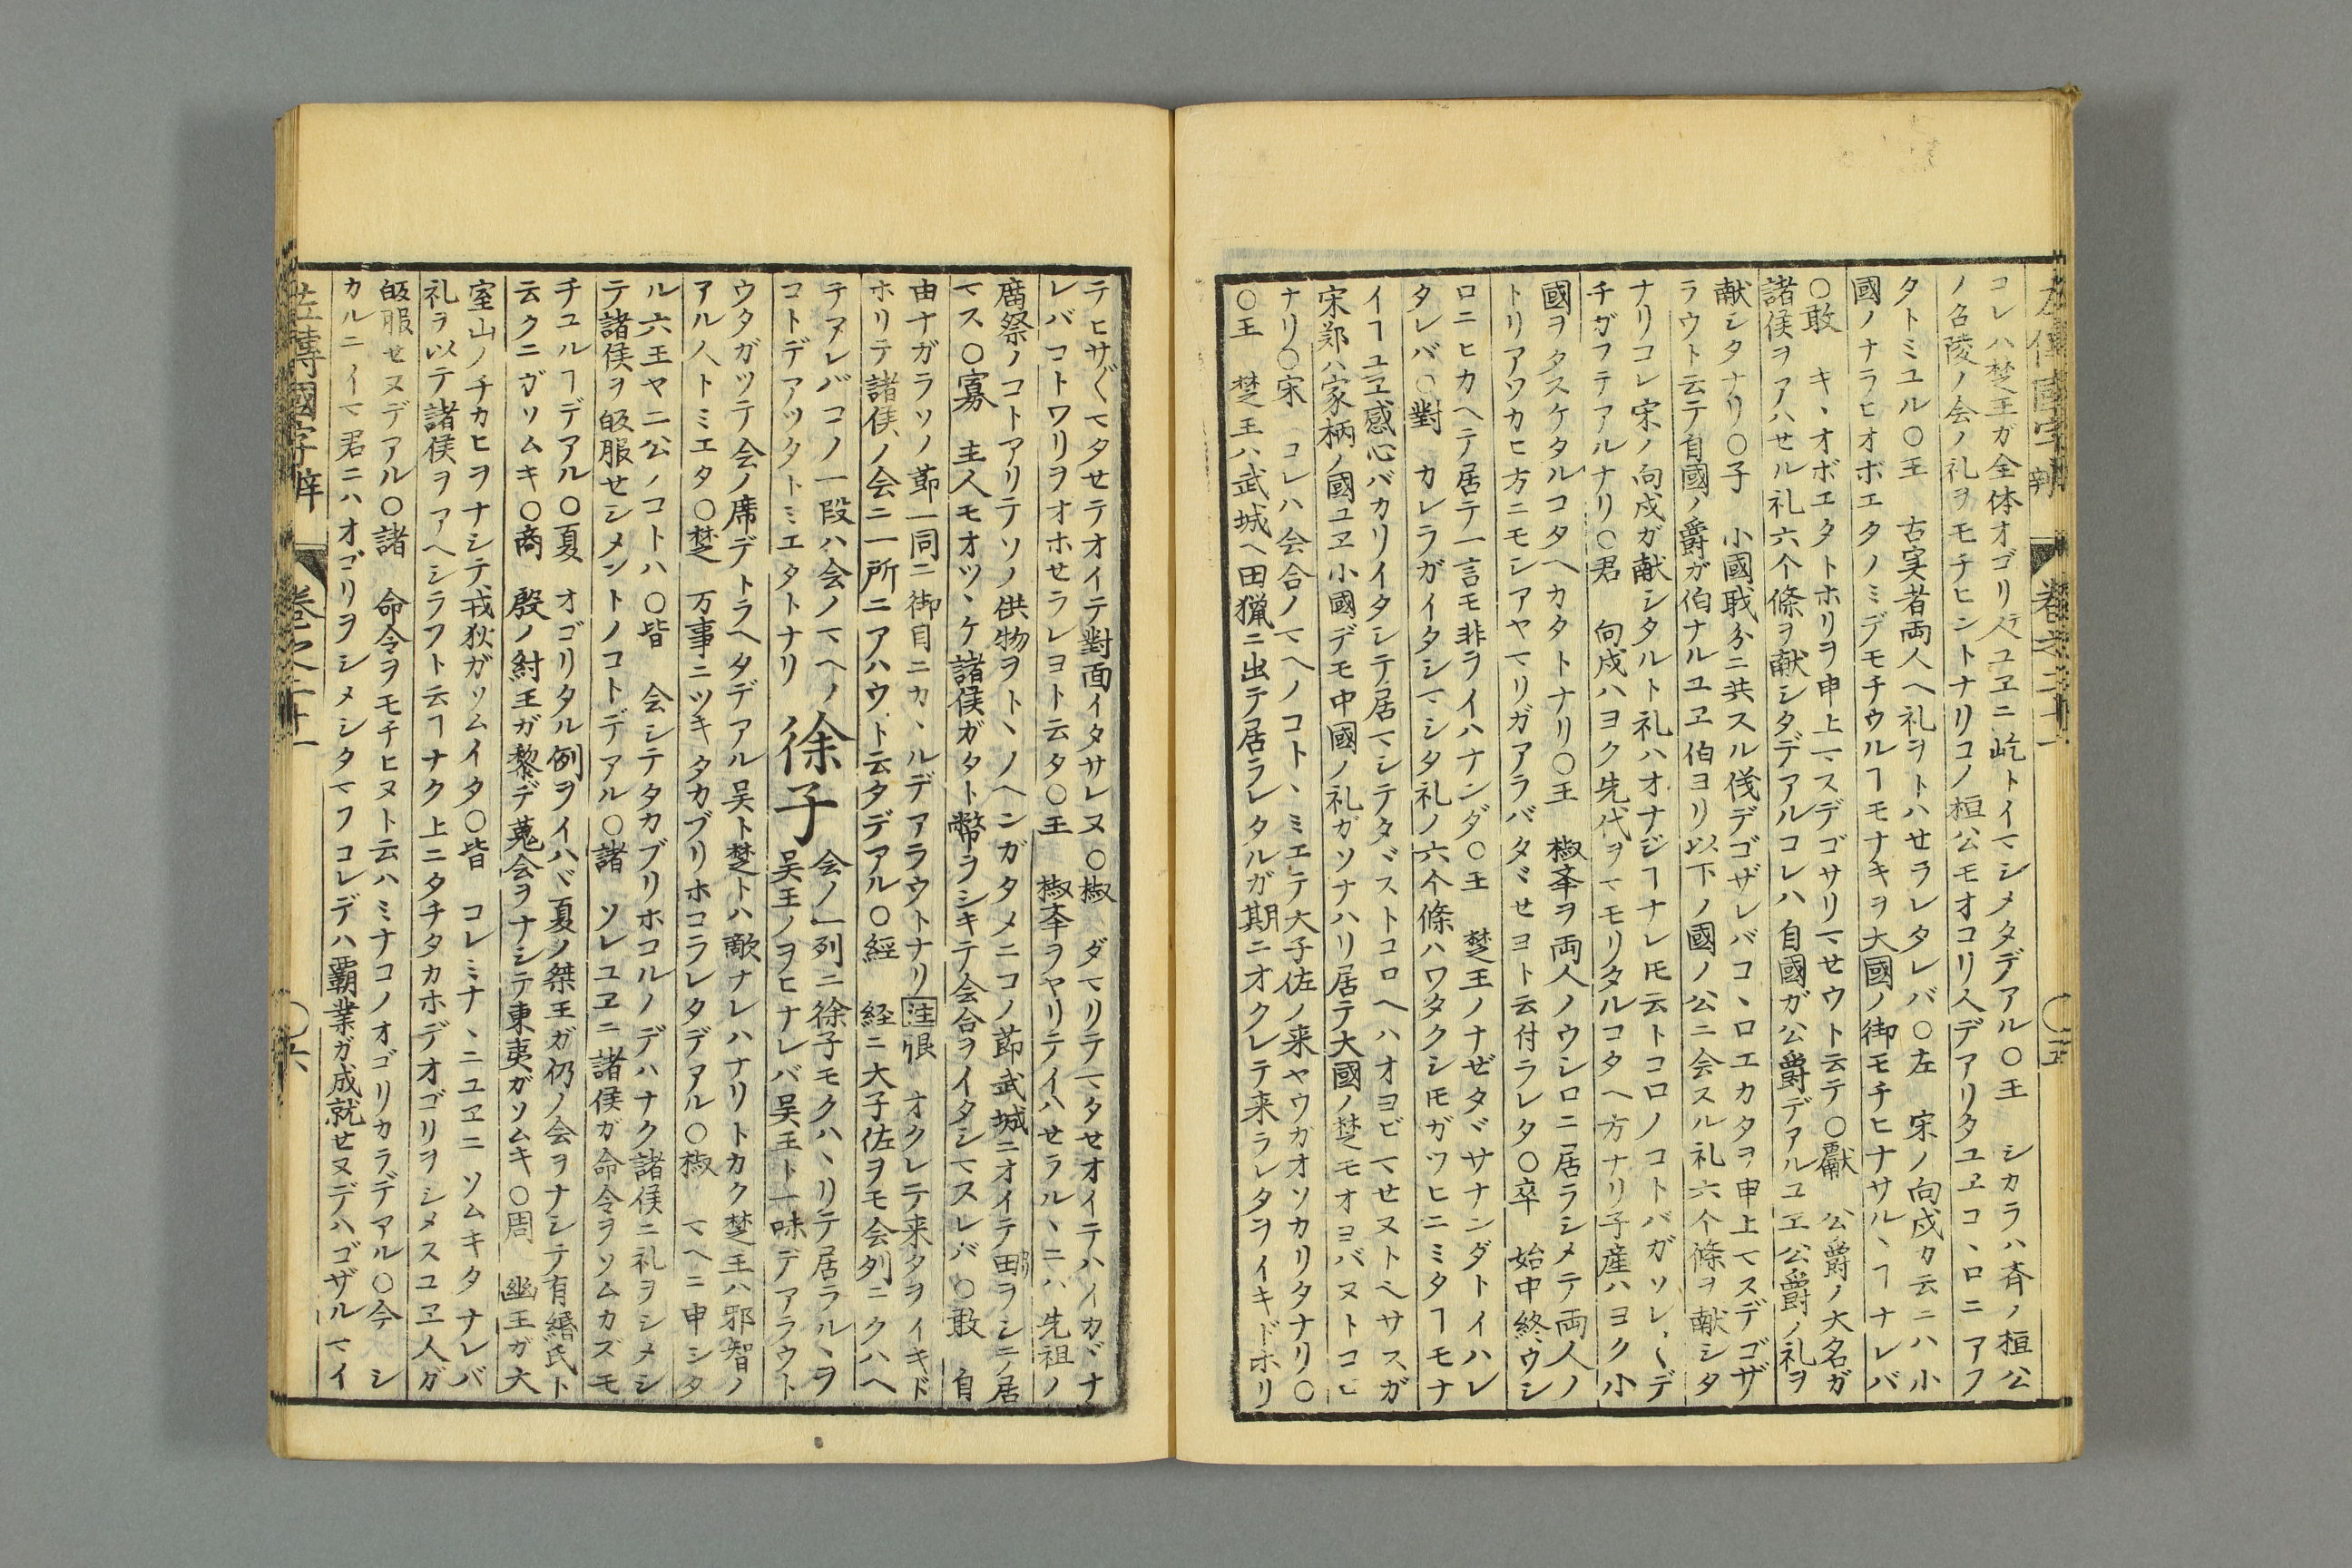 左傳國字辨 卷之二十一 ○五
コレハ楚王ガ全体オゴリ人ユヱニ屹トイマシメタデアル○王 シカラハ斉ノ桓公
ノ召陵ノ会ノ礼ヲモチヒントナリコノ桓公モオコリ人デアリタユヱコヽロニアフ
タトミユル○王 古実者両人ヘ礼ヲトハセラレタレバ○左 宋ノ向戌カ云ニハ小
國ノナラヒオボエタノミデモチウルヿモナキヲ大國ノ御モチヒナサルヽヿナレバ
○敢 キヽオボエタトホリヲ申上マスデゴサリマセウト云テ○獻 公爵ノ大名ガ
諸侯ヲアハセル礼六个條ヲ献シタデアルコレハ自國ガ公爵デアルユヱ公爵ノ礼ヲ
献シタナリ○子 小國職分ニ共スル伐デゴザレバコヽロエカタヲ申上マスデゴザ
ラウト云テ自國ノ爵ガ伯ナルユヱ伯ヨリ以下ノ國ノ公ニ会スル礼六个條ヲ献シタ
ナリコレ宋ノ向戌ガ献シタルト礼ハオナジヿナレ𪜈云トコロノコトバガソレ〳〵デ
チガフテアルナリ○君 向戌ハヨク先代ヲマモリタルコタヘ方ナリ子産ハヨク小
國ヲタスケタルコタヘカタトナリ○王 椒挙ヲ両人ノウシロニ居ラシメテ両人ノ
トリアツカヒ方ニモシアヤマリガアラバタヾセヨト云付ラレタ○卒 始中終ウシ
ロニヒカヘテ居テ一言モ非ヲイハナンダ○王 楚王ノナゼタヾサナンダトイハレ
タレバ○對 カレラガイタシマシタ礼ノ六个條ハワタクシ𪜈ガツヒニミタヿモナ
イヿユヱ感心バカリイタシテ居マシテタヾストコロヘハオヨビマセヌトヘサスガ
宋鄭ハ家柄ノ國ユヱ小國デモ中國ノ礼ガソナハリ居テ大國ノ楚モオヨバヌトコヒ
ナリ○宋 コレハ会合ノマヘノコトヽミエテ大子佐ノ来ヤウガオソカリタナリ○
○王 楚王ハ武城ヘ田猟ニ出テ居ラレタルガ期ニオクレテ来ラレタヲイキドホリ
テヒサ〴〵マタセテオイテ對面イタサレヌ○椒 ダマリテマタセオイテハイカヾナ
レバコトワリヲオホセラレヨト云タ○王 椒挙ヲヤリテイハセラルヽニハ先祖ノ
廟祭ノコトアリテソノ供物ヲトヽノヘンガタメニコノ節武城ニオイテ田ヲシテ居
マス○寡 主人モオツヽケ諸侯ガタト幣ヲシキテ会合ヲイタシマスレバ○敢 自
由ナガラソノ節一同ニ御目ニカヽルデアラウトナリ注恨 オクレテ来タヲイキド
ホリテ諸侯ノ会ニ一所ニアハウト云タデアル○經 経ニ大子佐ヲモ会列ニクハヘ
テアレバコノ一段ハ会ノマヘノ
コトデアツタトミエタトナリ
徐子
会ノ一列ニ徐子モクハヽリテ居ラルヽヲ
呉王ノヲヒナレバ呉王ト一味デアラウト
ウタガツテ会ノ席デトラヘタデアル呉ト楚トハ敵ナレハナリトカク楚王ハ邪智ノ
アル人トミエタ○楚 万事ニツキタカブリホコラレタデアル○椒 マヘニ申シタ
ル六王ヤ二公ノコトハ○皆 会シテタカブリホコルノデハナク諸侯ニ礼ヲシメシ
テ諸侯ヲ皈服セシメントノコトデアル○諸 ソレユヱニ諸侯ガ命令ヲソムカズモ
チユルヿデアル○夏 オゴリタル例ヲイハヾ夏ノ桀王ガ仍ノ会ヲナシテ有緡氏ト
云クニガソムキ○商 殷ノ紂王ガ黎デ蒐会ヲナシテ東夷ガソムキ○周 幽王ガ大
室山ノチカヒヲナシテ戎狄ガソムイタ○皆 コレミナヽニユヱニソムキタナレバ
礼ヲ以テ諸侯ヲアヘシラフト云ヿナク上ニタチタカホデオゴリヲシメスユヱ人ガ
皈服セヌデアル○諸 命令ヲモチヒヌト云ハミナコノオゴリカラデアル○今 シ
カルニイマ君ニハオゴリヲシメシタマフコレデハ覇業ガ成就セヌデハゴザルマイ
左傳國字辨 卷之二十一 ○六